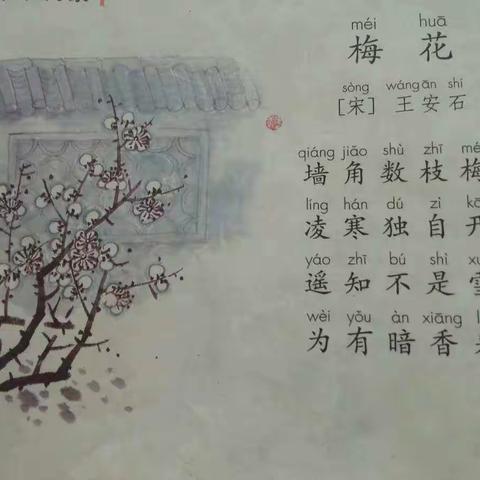 méi huā
梅 花
sòng wáng ān shí
[宋] 王 安 石
qiáng jiāo shù zhī
墙 角 数 枝 梅
líng hán dú zì
凌 寒 独 自 开
yáo zhī bú shì
遥 知 不 是 雪
wèi yǒu àn xiāng
为 有 暗 香